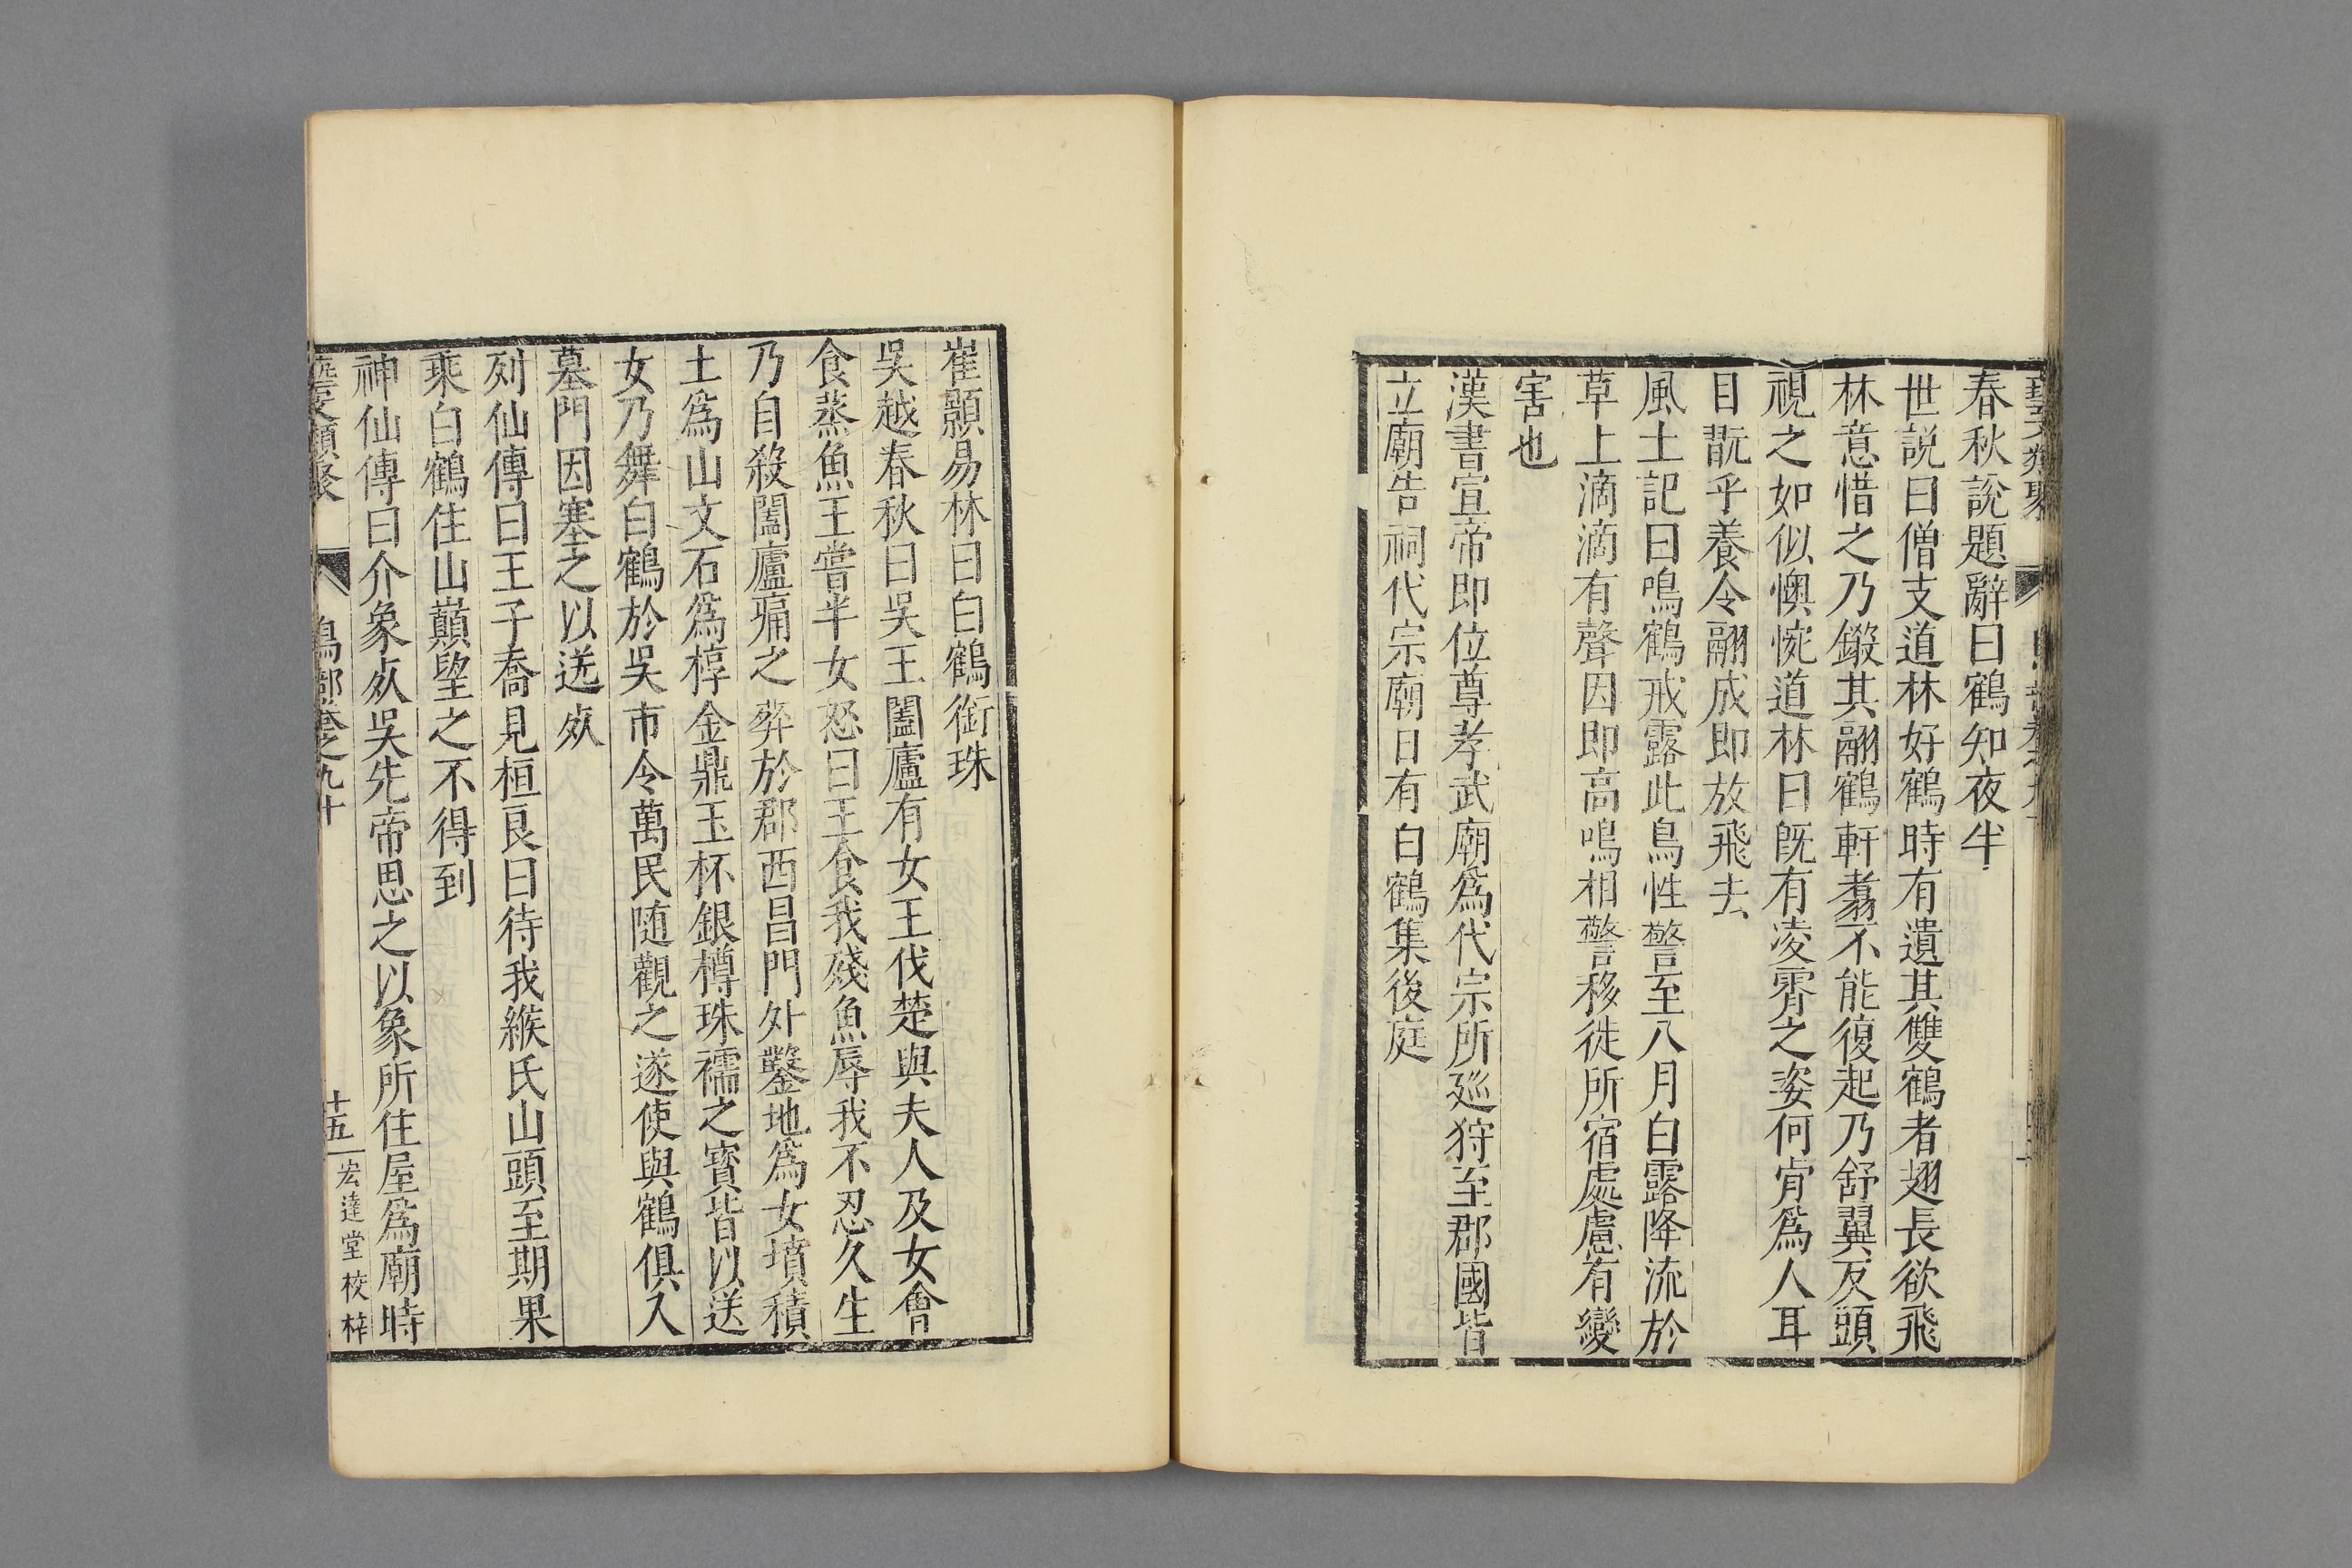 春秋說題辭曰鶴知夜半
世説曰僧支道林好鶴時有遺其雙鶴者翅長欲飛
林意惜之乃鎩其翮鶴軒翥不能復起乃舒翼反頭
視之如似懊惋道林曰既有凌霄之姿何肯爲人耳
目翫乎養令翮成即放飛去
風土記曰鳴鶴戒露此鳥性警至八月白露降流於
草上滴滴有聲因即高鳴相警移徙所宿處慮有變
害也
漢書宣帝即位尊孝武廟爲代宗所廵狩至郡國皆
立廟告祠代宗廟日有白鶴集後庭
崔顥易林曰白鶴銜珠
吳越春秋曰吳王闔廬有女王伐楚與夫人及女會
食蒸魚王嘗半女怒曰王食我殘魚辱我不忍久生
乃自殺闔廬痛之葬於郡西昌門外鑿地爲女墳積
土爲山文石爲椁金鼎玉杯銀樽珠襦之寳皆以送
女乃舞白鶴於吳市令萬民随觀之遂使與鶴俱入
墓門因塞之以送死
列仙傳曰王子喬見桓良曰待我緱氏山頭至期果
乘白鶴住山巔望之不得到
神仙傳曰介象死吳先帝思之以象所住屋爲廟時
藝文類聚 鳥部卷之九十 十五 宏達堂校梓